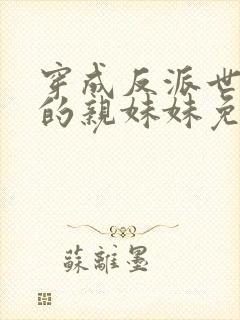 穿成反派世
的親妹妹免
蘇離墨